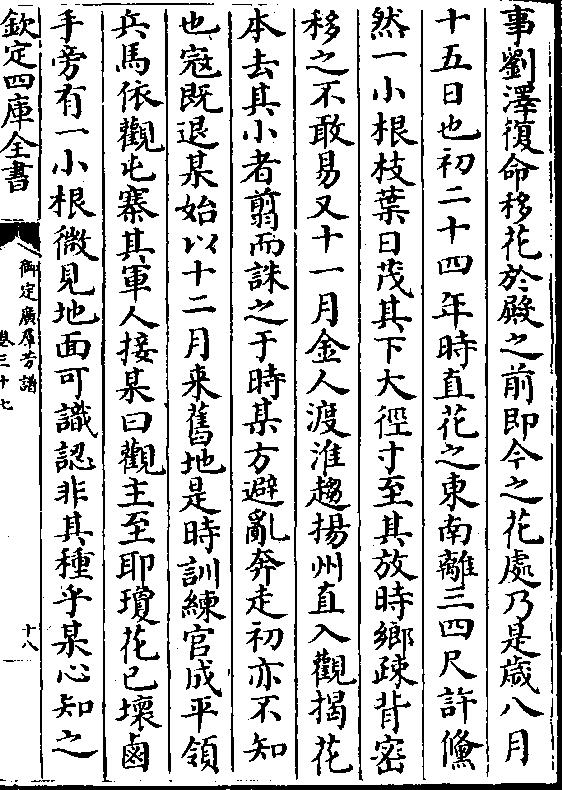 事劉澤復命移花於殿之前即今之花處乃是歳八月
十五日也初二十四年時直花之東南離三四尺許儵
然一小根枝葉日茂其下大徑寸至其放時鄉疎背密
移之不敢易又十一月金人渡淮趨揚州直入觀揭花
本去其小者翦而誅之于時某方避亂奔走初亦不知
也寇既退某始以十二月来舊地是時訓練官成平領
兵馬依觀屯寨其軍人接某曰觀主至耶瓊花已壞鹵
手旁有一小根微見地面可識認非其種乎某心知之
欽定四庫全書
御定廣羣芳譜
卷三十七
十八